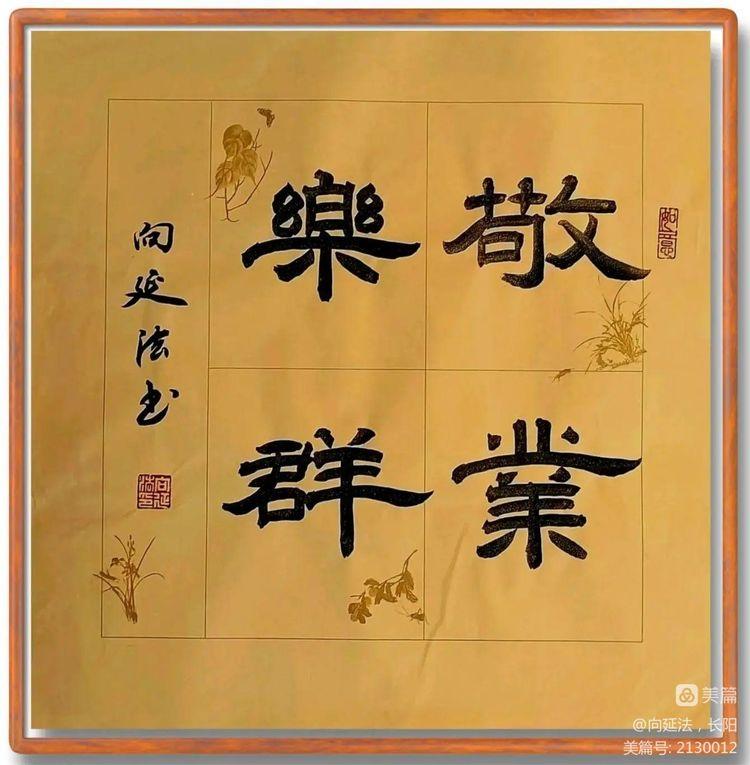 敬業
樂群
向延法书
如意
向延法印
美篇
@向延法，长阳
美篇号: 2130012